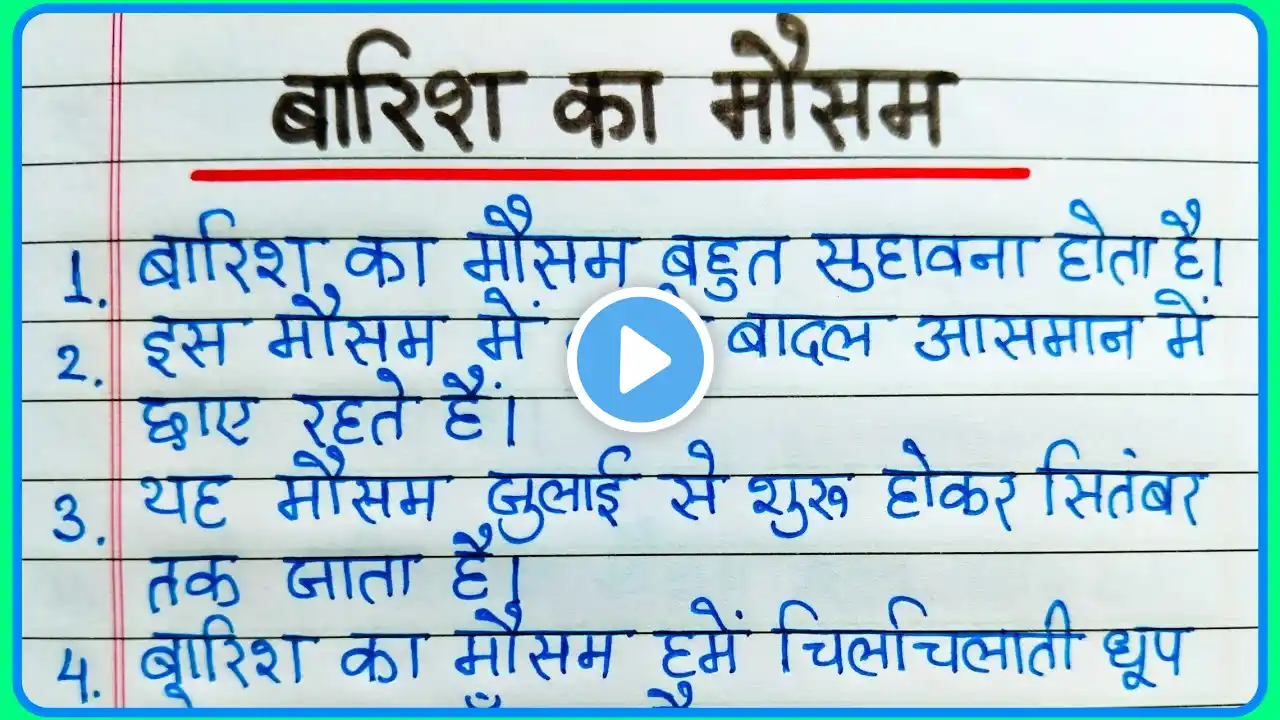 बारिश का मौसम
1. बारिश का मौसम बहुत सुहावना होता है।
2. इस मौसम में बादल आसमान में
छाए रहते हैं।
3. यह मौसम जुलाई से शुरू होकर सितंबर
तक जाता है।
4. बारिश का मौसम हमें चिलचिलाती धूप